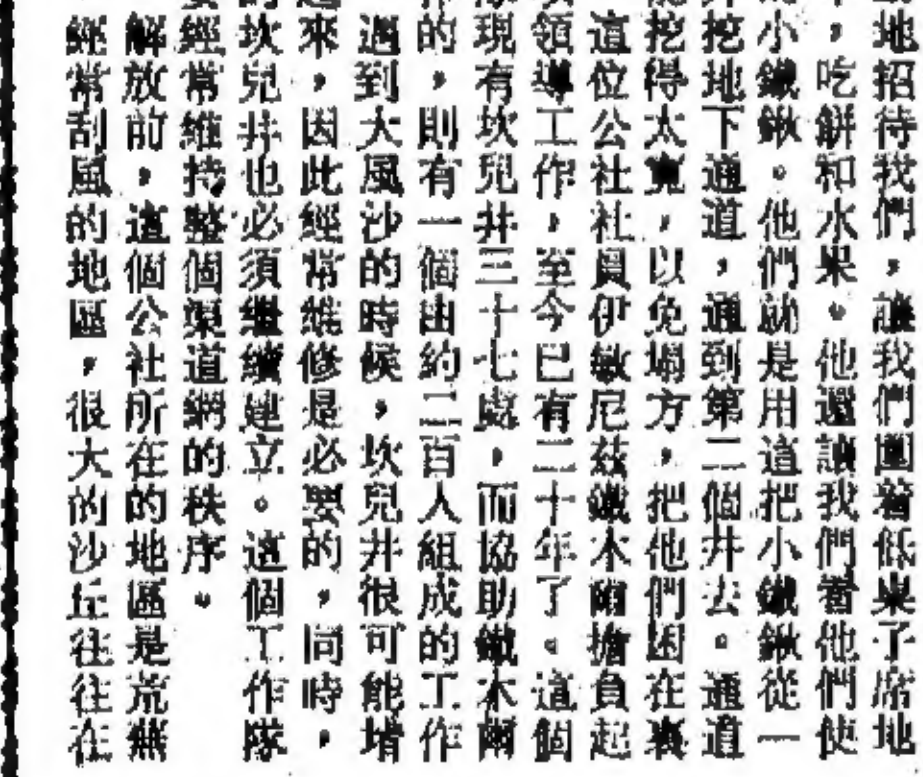 地招待我們，讓我們圍着低桌子席地
，吃餅和水果。他還讓我們看他們使
小鐵鍬。他們就是用這把小鐵鍬從一
挖地下通道，通到第二個井去。通道
挖得太寬，以免塌方，把他們困在裏
這位公社社員伊敏尼茲鐵木爾擔負起
領導工作，至今已有二十年了。這個
現有坎兒井三十七處，而協助鐵木爾
的，則有一個由約二百人組成的工作
遇到大風沙的時候，坎兒井很可能堵
來，因此經常維修是必要的，同時，
坎兒井也必須繼續建立。這個工作隊
經常維持整個渠道網的秩序。
解放前，這個公社所在的地區是荒無
經常刮風的地區，很大的沙丘往往在